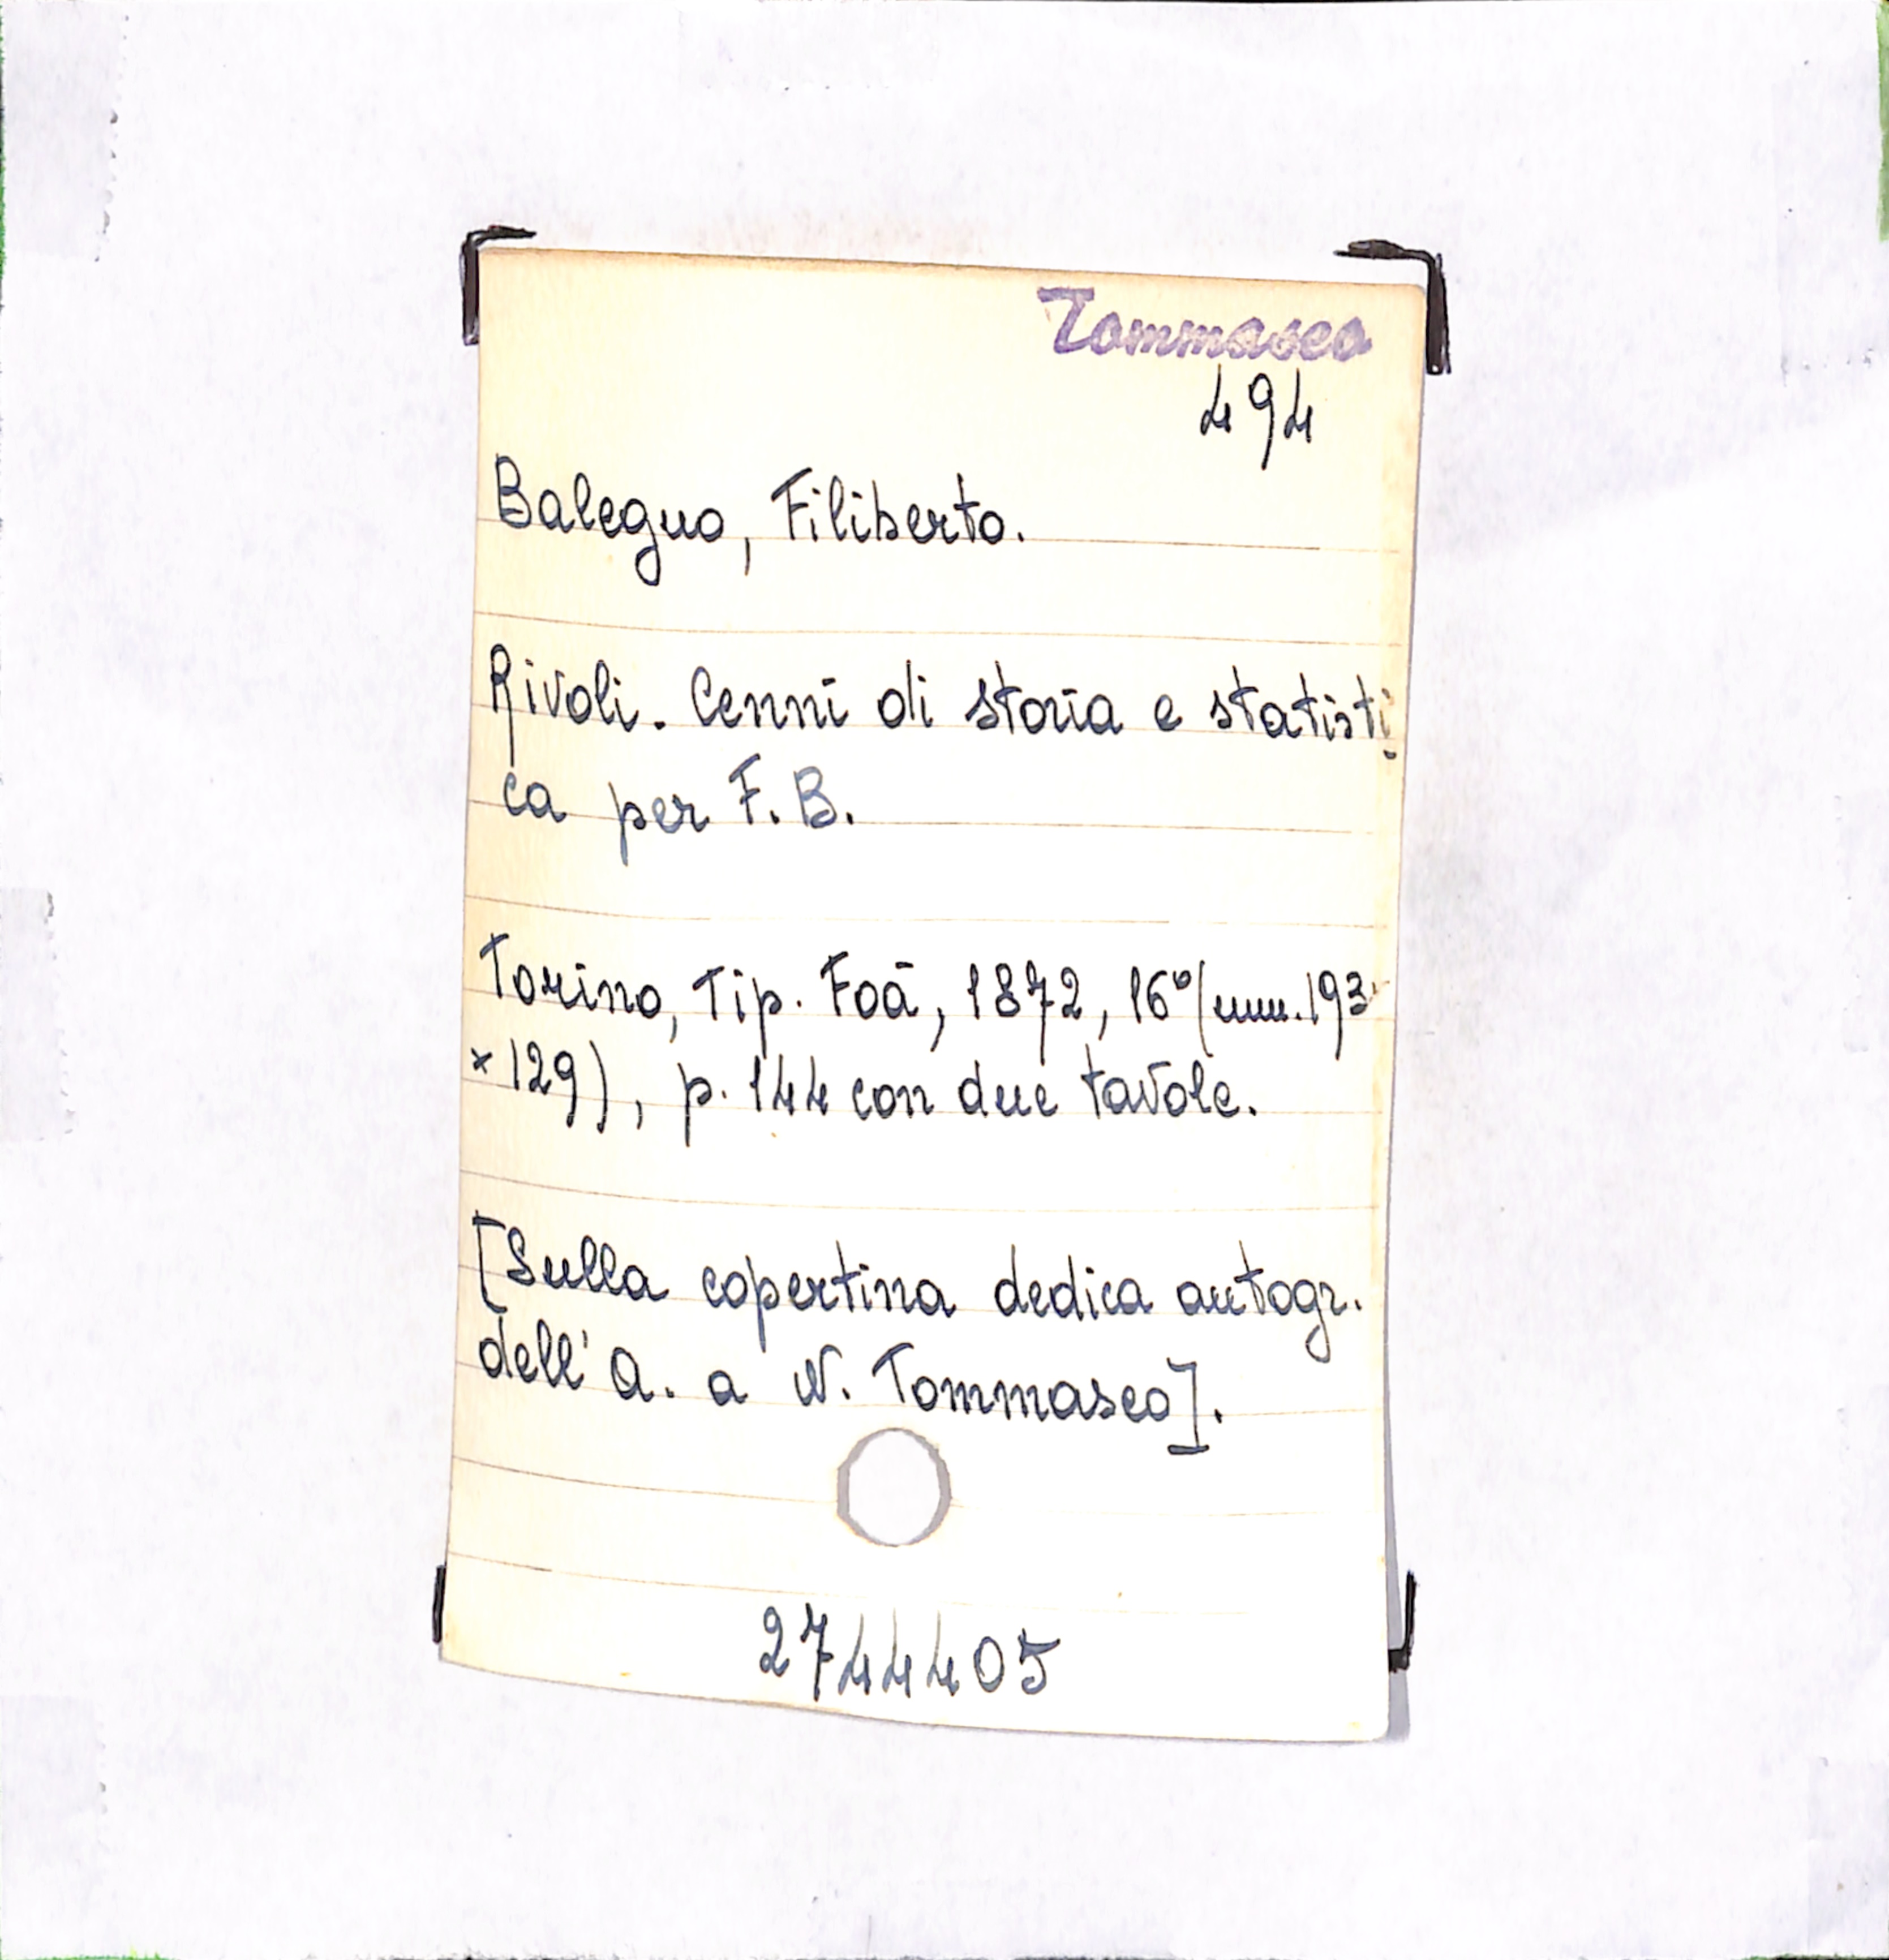 Tommaseo
494
Balegno, Filiberto.
Rivoli. Cenni di storia e statisti
ca per F. B.
Torino, Tip. Foà, 1872, 16° (mm. 193
×129), p. 144 con due tavole.
[Sulla copertina dedica autogr.
dell'A. a N. Tommaseo].
2744405